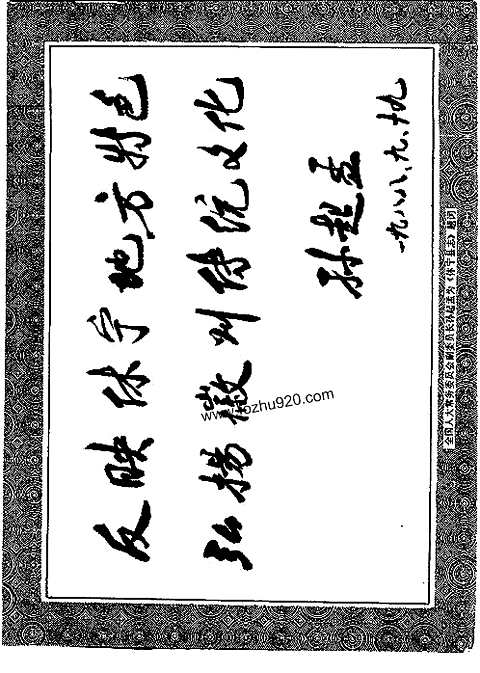 反映休宁地方特色
弘扬徽州传统文化
孙起孟
一九八八、九、十九
全国人大常务委员会副委员长孙起孟为《休宁县志》题词
www.fozhu920.com